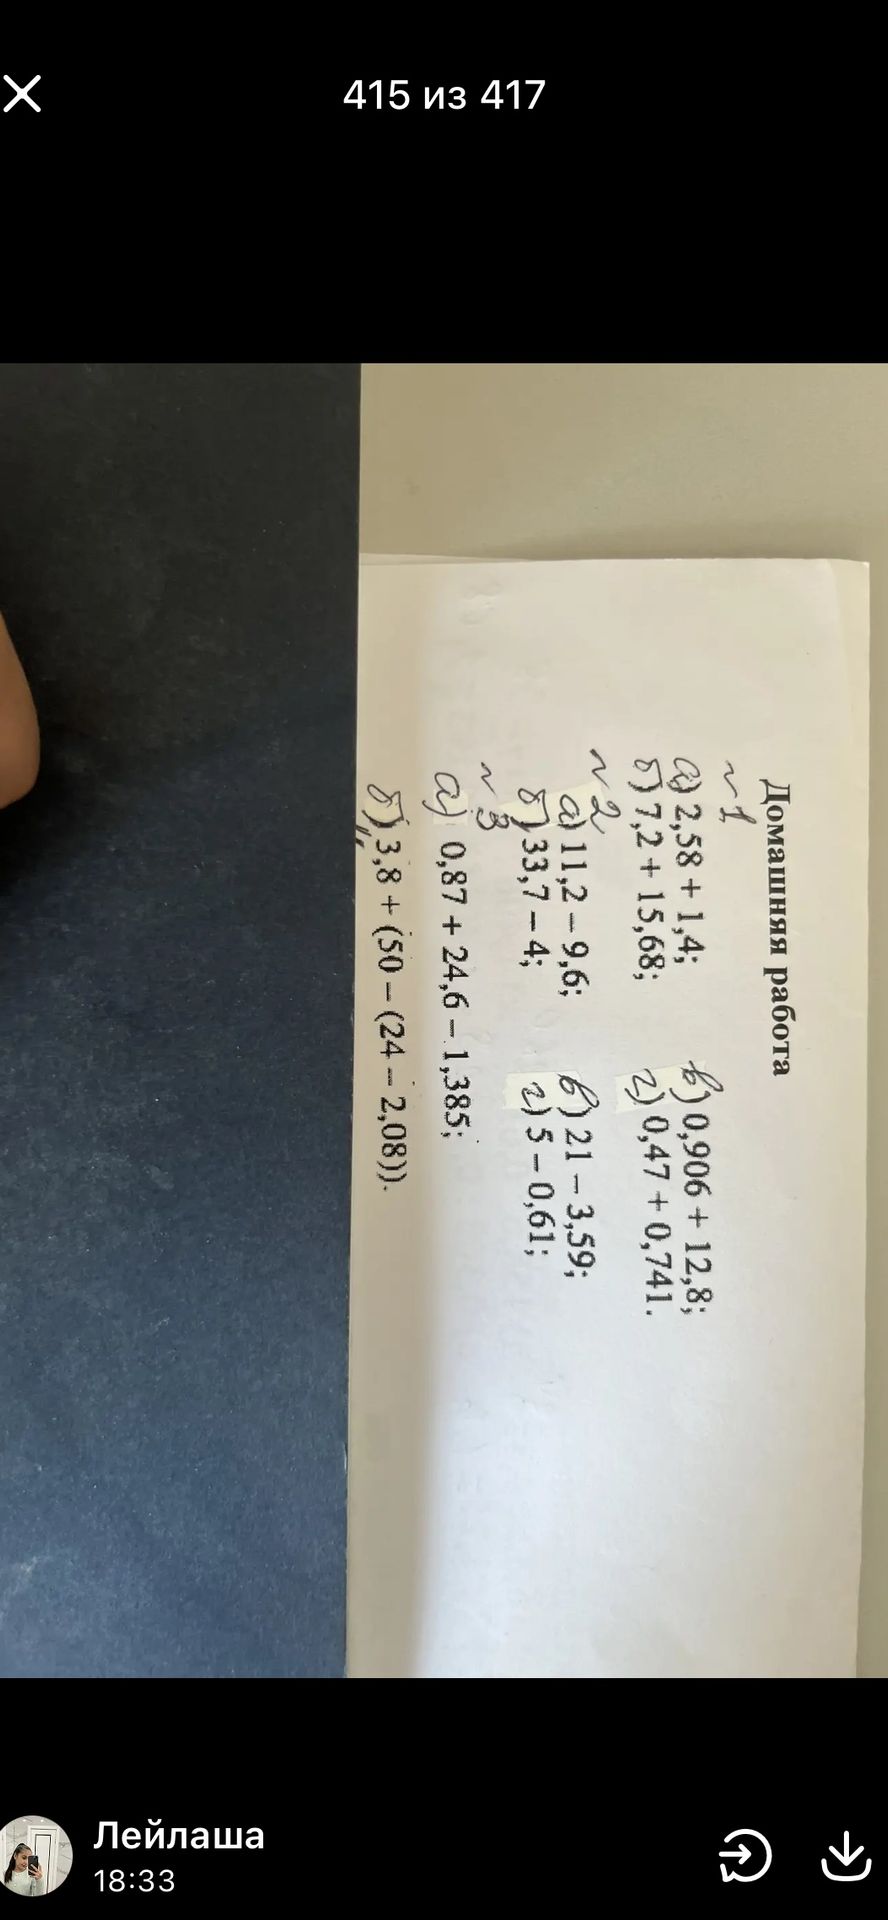 415 из 417
Домашняя работа
~ 1
а) 2,58 + 1,4; в) 0,906 + 12,8;
б) 7,2 + 15,68; г) 0,47 + 0,741.
~ 2
а) 11,2 – 9,6; в) 21 – 3,59;
б) 33,7 – 4; г) 5 – 0,61;
~ 3
а) 0,87 + 24,6 – 1,385;
б) 3,8 + (50 – (24 – 2,08)).
Лейлаша
18:33